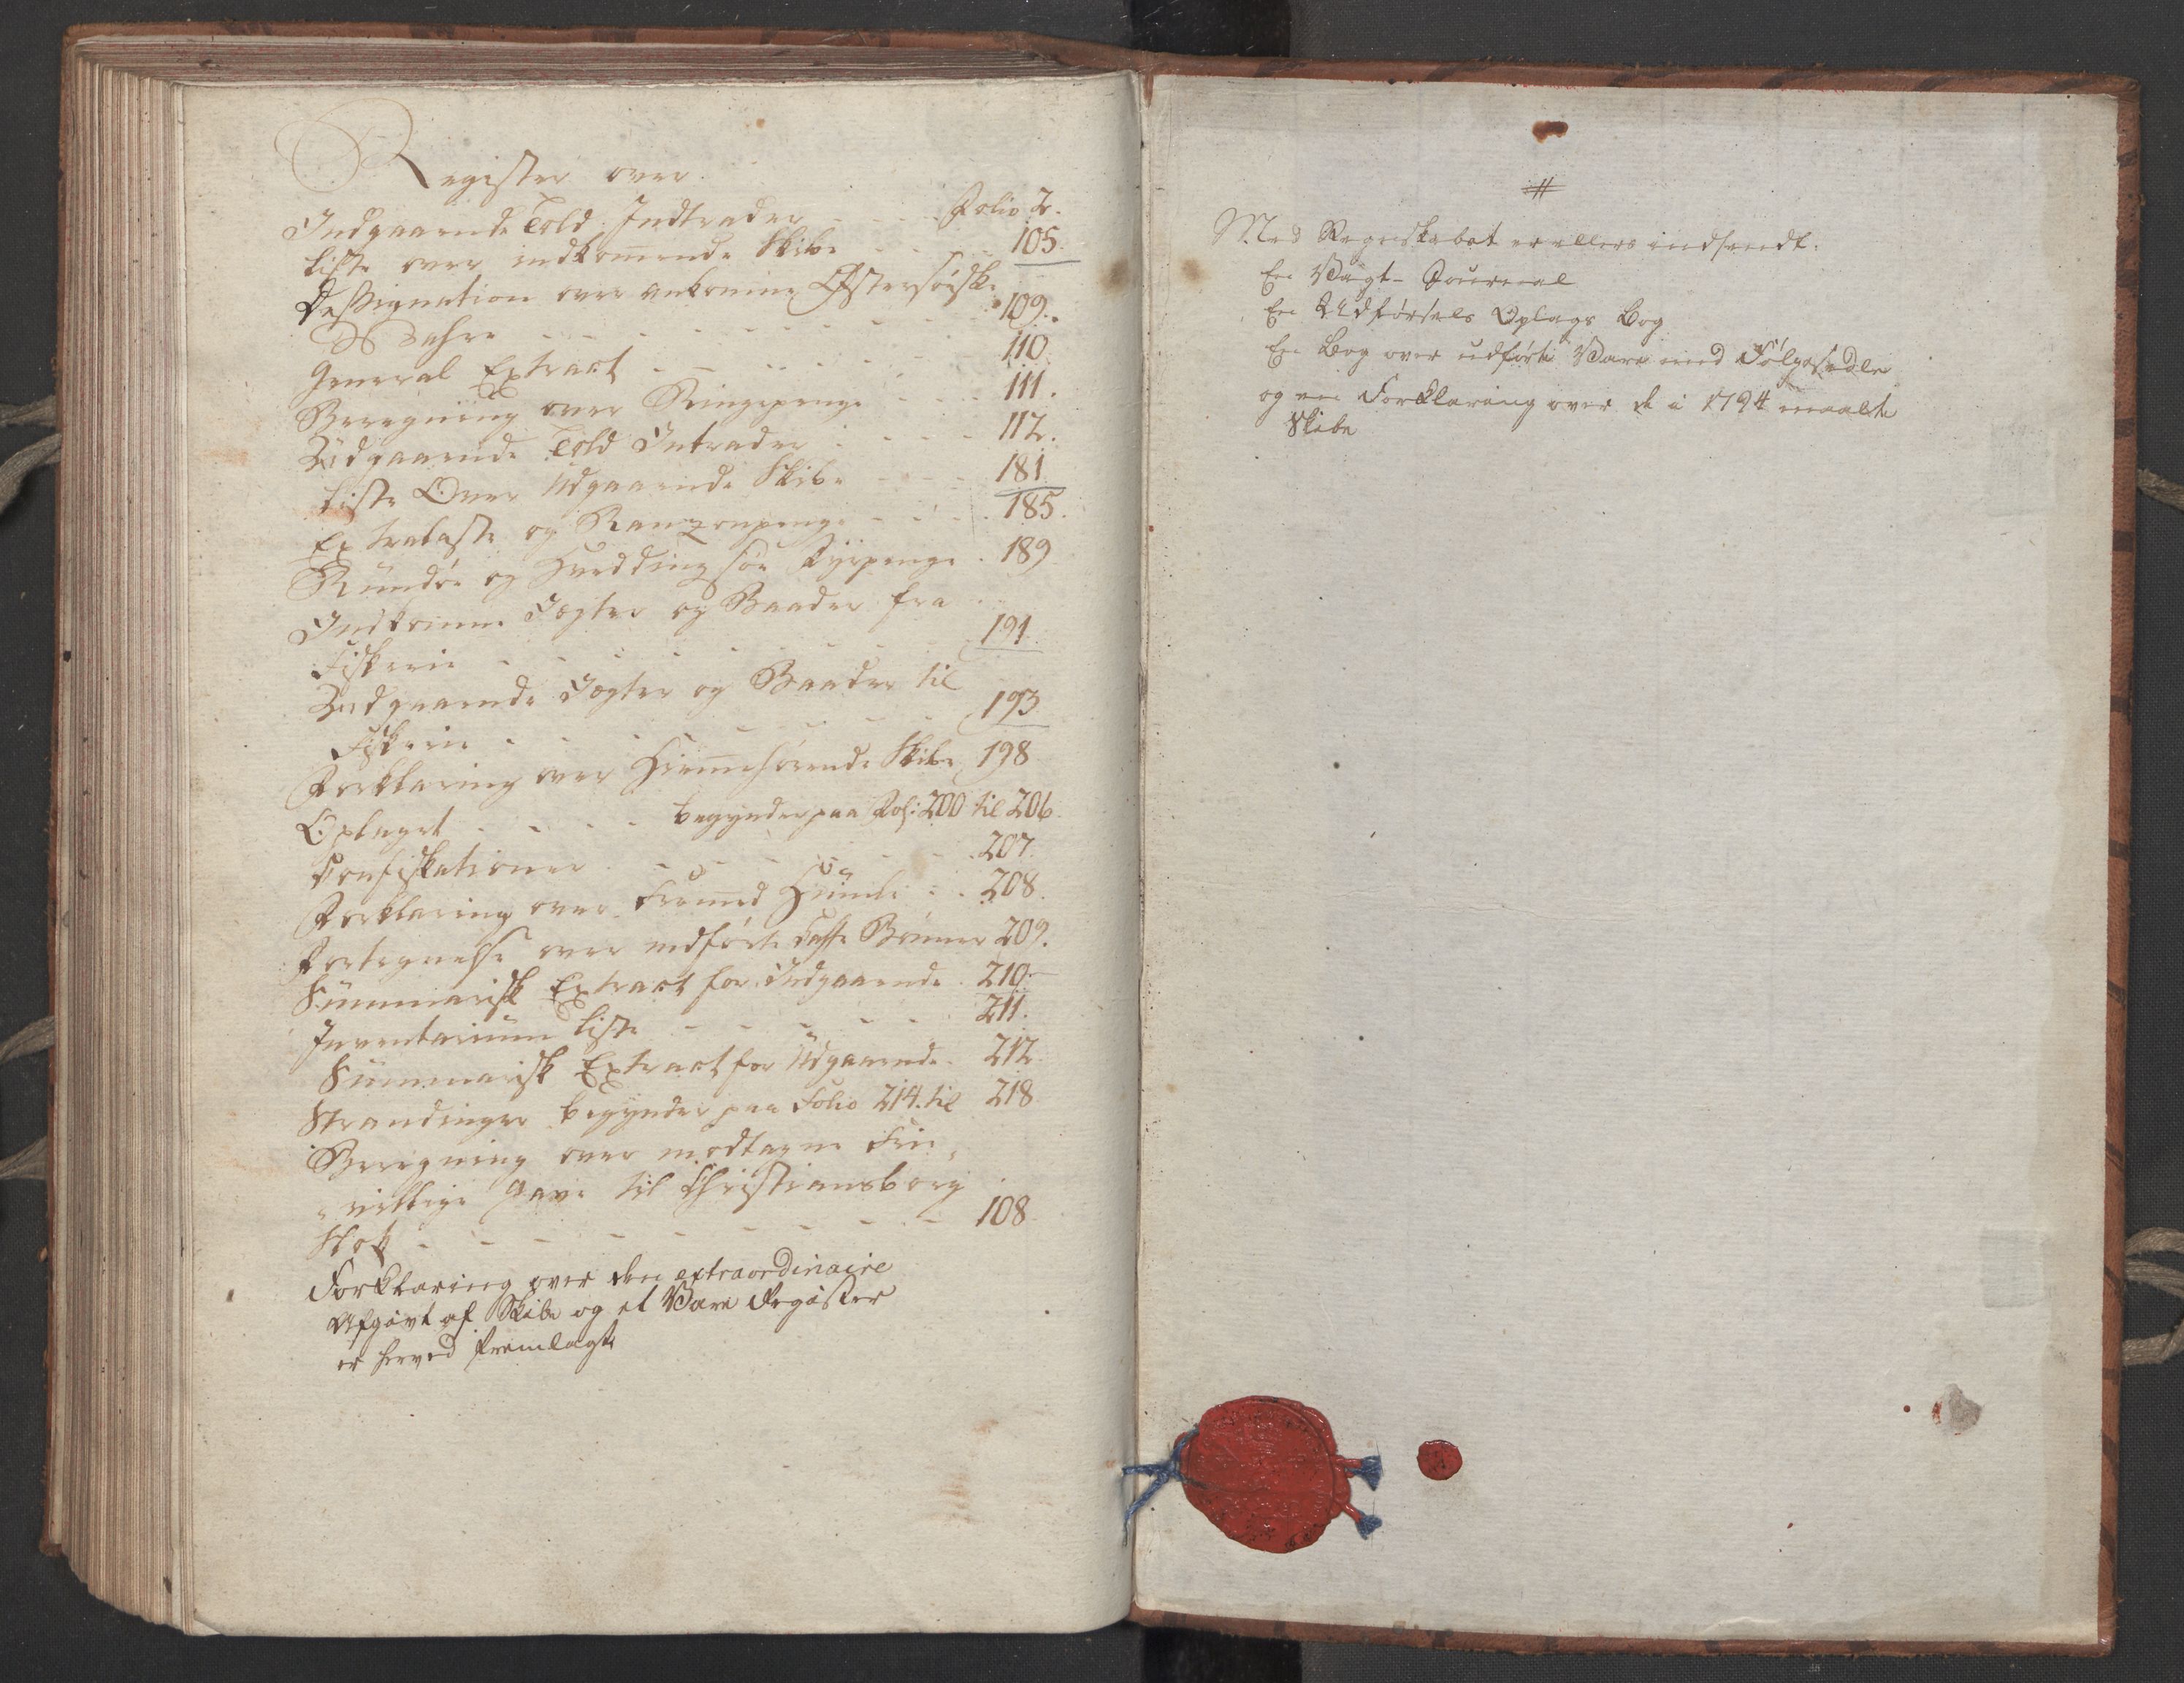 Register over.
Indgaaende Told Indtrader - - - Folio 2.
Liste over indkommende Skibe - - - 105.
Dessignation over ankomne Østersøiske
Vahre - - - 109.
General Extract - - - 110.
Beregning over Ringepenge - - - 111.
Udgaaende Told Intrader - - - 112.
Liste Over Udgaaende Skibe - - - 181
Extralaste og Ranzonpenge - - - 185.
Rundøe og Hvedding søe Fyrpenge . 189
Indkomne Jægter og Baader fra
Fiskerie - - - 191.
Udgaaende Jægter og Baader til
Fiskerie - - - 193
Forklaring over Hiemmehørende Skibe 198
Oplaget - - - begynder paa Fol: 200 til 206.
Confiskationer - - - 207.
Forklaring over Fremmed Humle - - 208.
Fortegnelse over indførte Caffe Bønner 209.
Summarisk Extract for Indgaaende . 210.
Inventarium Liste - - - 211.
Summarisk Extract for Udgaaende . 212.
Strandinger begynder paa Folio 214. til 218
Beregning over modtagne Frie,
, villige Gave til Christiansborg
Slot - - - 108.
Forklaring over den extraordinaire
Afgivt af Skibe og et Vare Register
er herved fremlagte
#
Med Regnskabet er ellers indsendt:
En Vagt-Journal
En Udførsels Oplags Bog
En Bog over udførte Vare med Følgesedle
og en Forklaring over de i 1794 maalte
Skibe